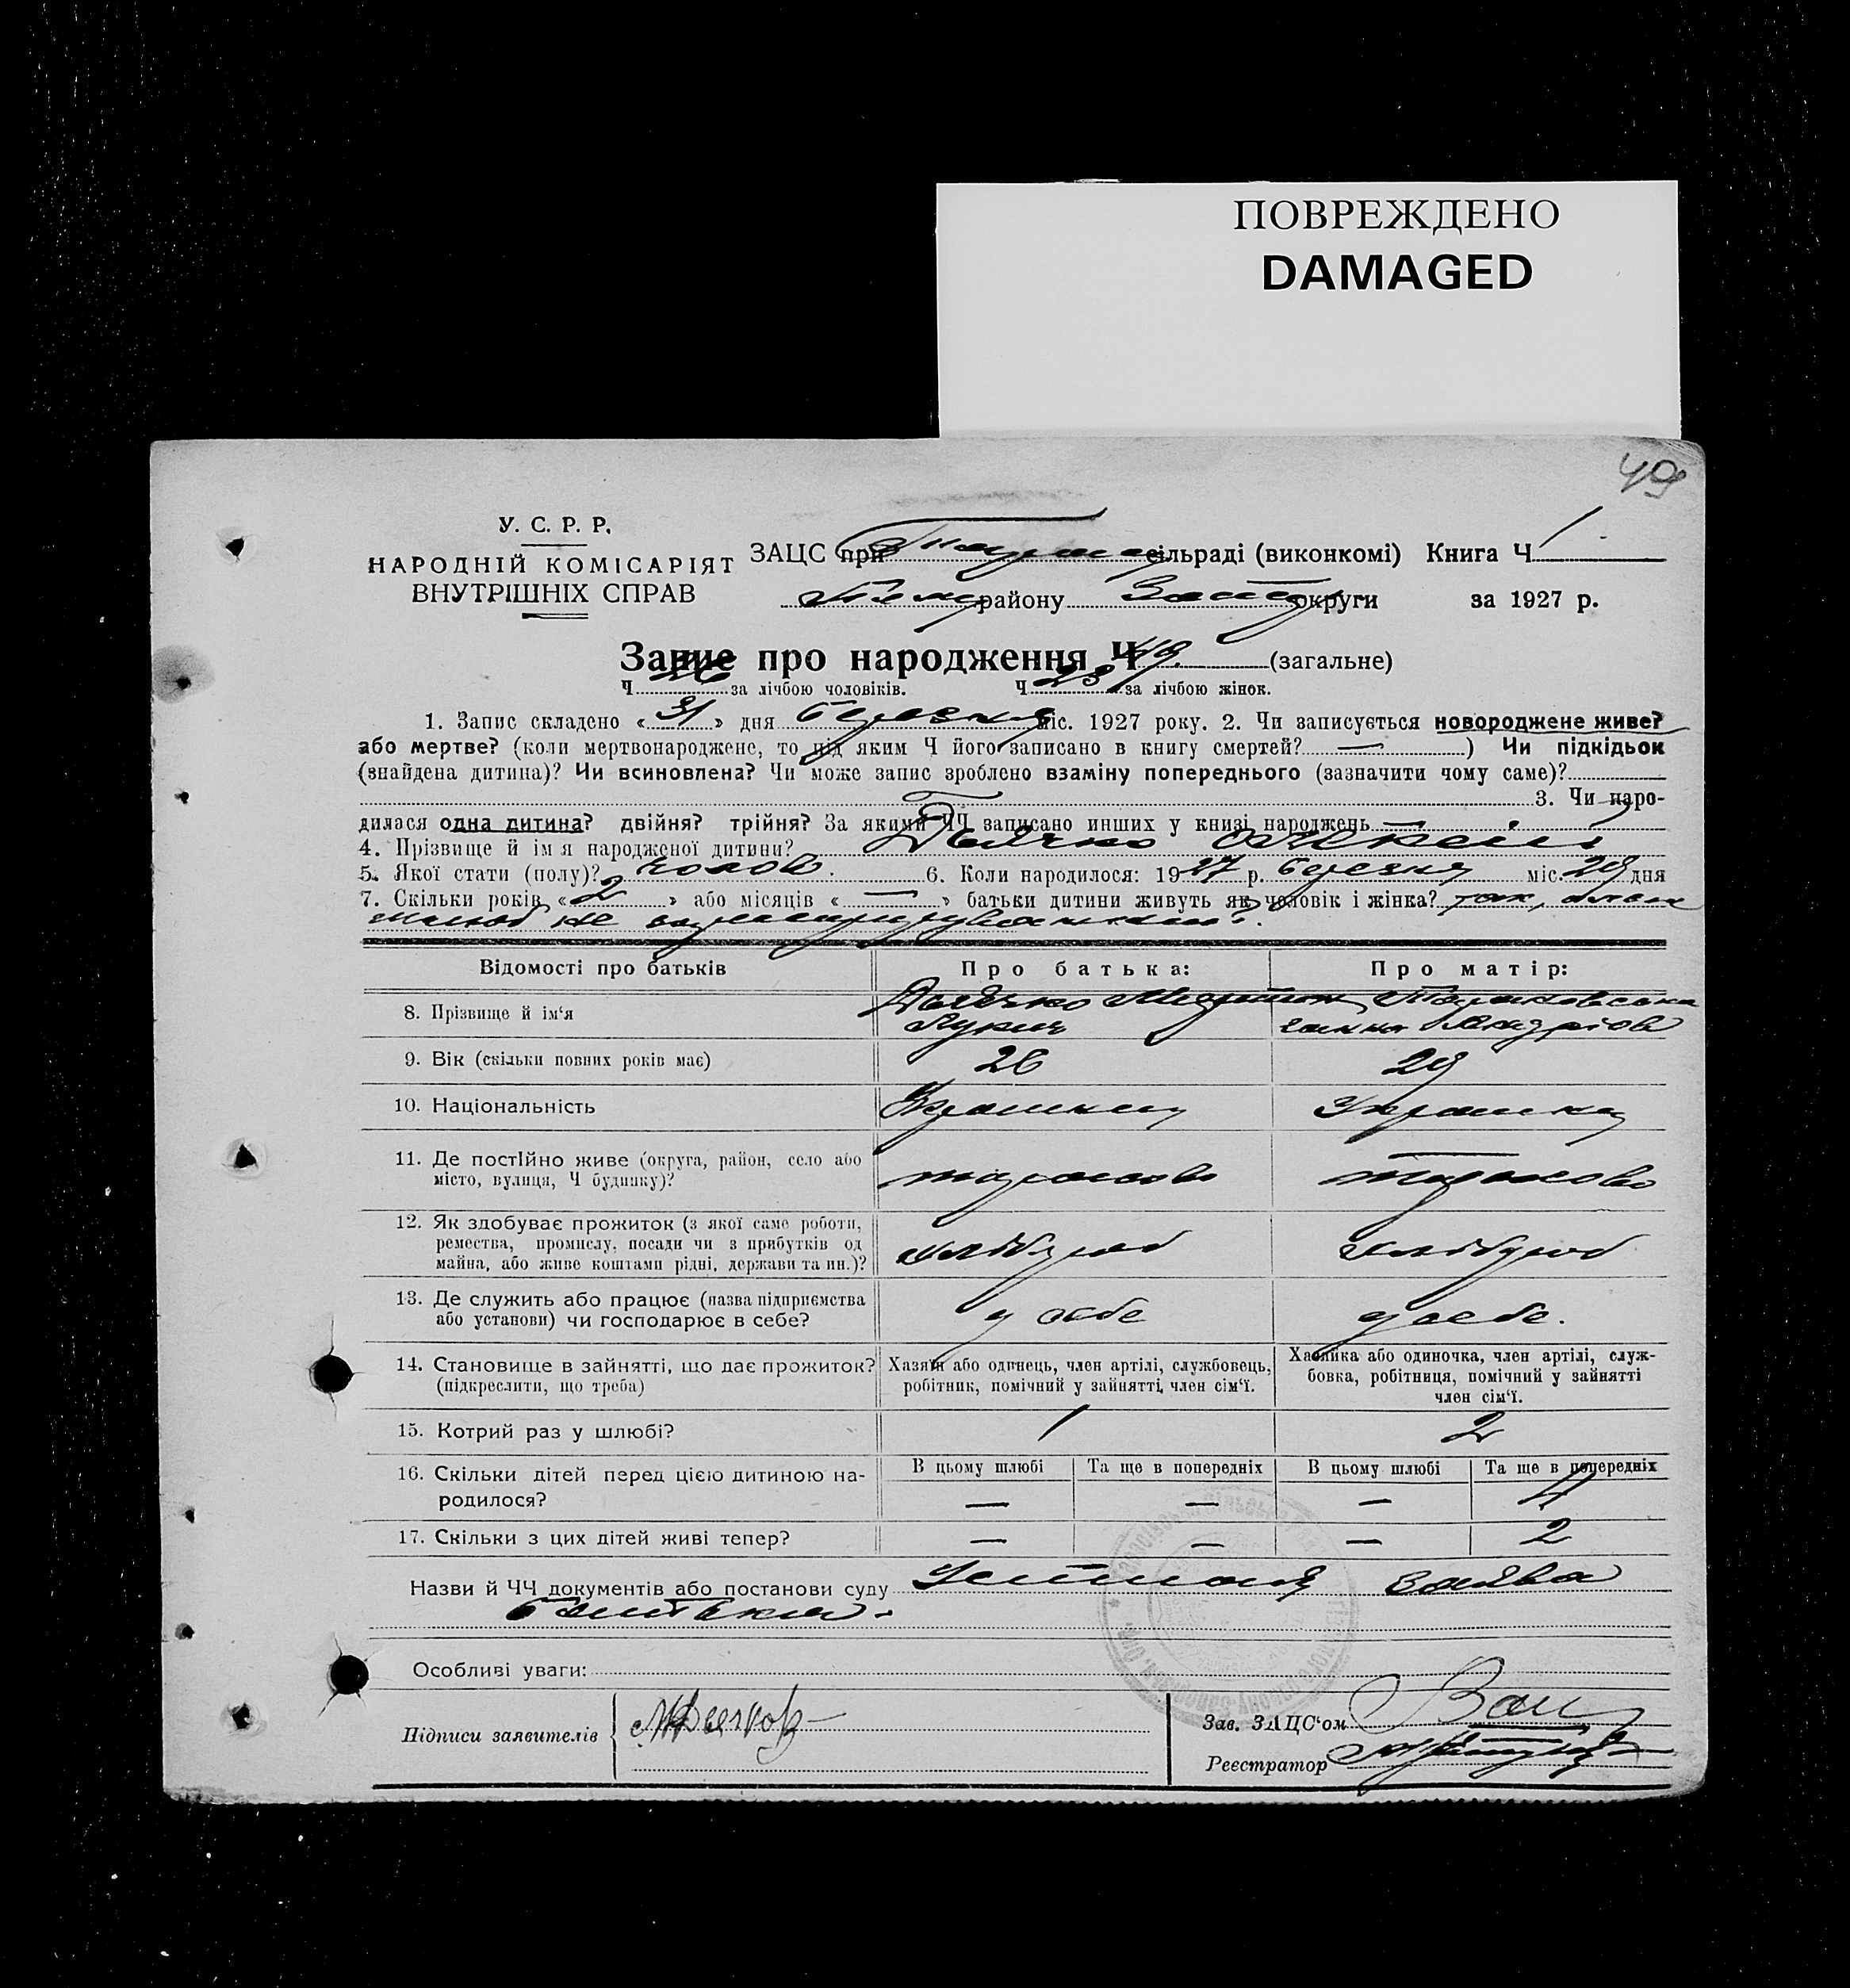 ПОВРЕЖДЕНО
DAMAGED
49
У. С. Р. Р.
НАРОДНІЙ КОМІСАРІЯТ
ВНУТРІШНІХ СПРАВ
ЗАЦС при сільраді (виконкомі) Книга Ч 1
району округи за 1927 р.
Запис про народження Ч 49. (загальне)
Ч 26 за лічбою чоловіків. Ч 23 за лічбою жінок.
1. Запис складено «31» дня березня міс. 1927 року. 2. Чи записується новороджене живе?
або мертве? (коли мертвонароджене, то під яким Ч його записано в книгу смертей? — ) Чи підкідьок
(знайдена дитина)? Чи всиновлена? Чи може запис зроблено взаміну попереднього (зазначити чому саме)?
3. Чи наро-
дилася одна дитина? двійня? трійня? За якими ЧЧ записано инших у книзі народжень —
4. Прізвище й ім'я народженої дитини? Дьячко Олексій
5. Якої стати (полу)? чолов. 6. Коли народилося: 1927 р. березня міс. 29 дня
7. Скільки років «2» або місяців « — » батьки дитини живуть як чоловік і жінка? так,
шлюб не
Відомості про батьків
Про батька:
Про матір:
8. Прізвище й ім'я
Дьячко
Лукич
Ганна Андріов
9. Вік (скільки повних років має)
26
29
10. Національність
11. Де постійно живе (округа, район, село або
місто, вулиця, Ч будинку)?
12. Як здобуває прожиток (з якої саме роботи,
ремества, промислу, посади чи з прибутків од
майна, або живе коштами рідні, держави та ин.)?
хлібороб
хлібороб
13. Де служить або працює (назва підприємства
або установи) чи господарює в себе?
у себе
у себе.
14. Становище в зайнятті, що дає прожиток?
(підкреслити, що треба)
Хазяїн або одинець, член артілі, службовець,
робітник, помічний у зайнятті, член сім'ї.
Хазяйка або одиночка, член артілі, служ-
бовка, робітниця, помічний у зайнятті
член сім'ї.
15. Котрий раз у шлюбі?
1
2
16. Скільки дітей перед цією дитиною на-
родилося?
В цьому шлюбі
Та ще в попередніх
В цьому шлюбі
Та ще в попередніх
— — — 4
17. Скільки з цих дітей живі тепер?
— — — 2
Назви й ЧЧ документів або постанови суду Устная заява
батька.
Особливі уваги:
Підписи заявителів
Зав. ЗАЦС'ом
Реєстратор